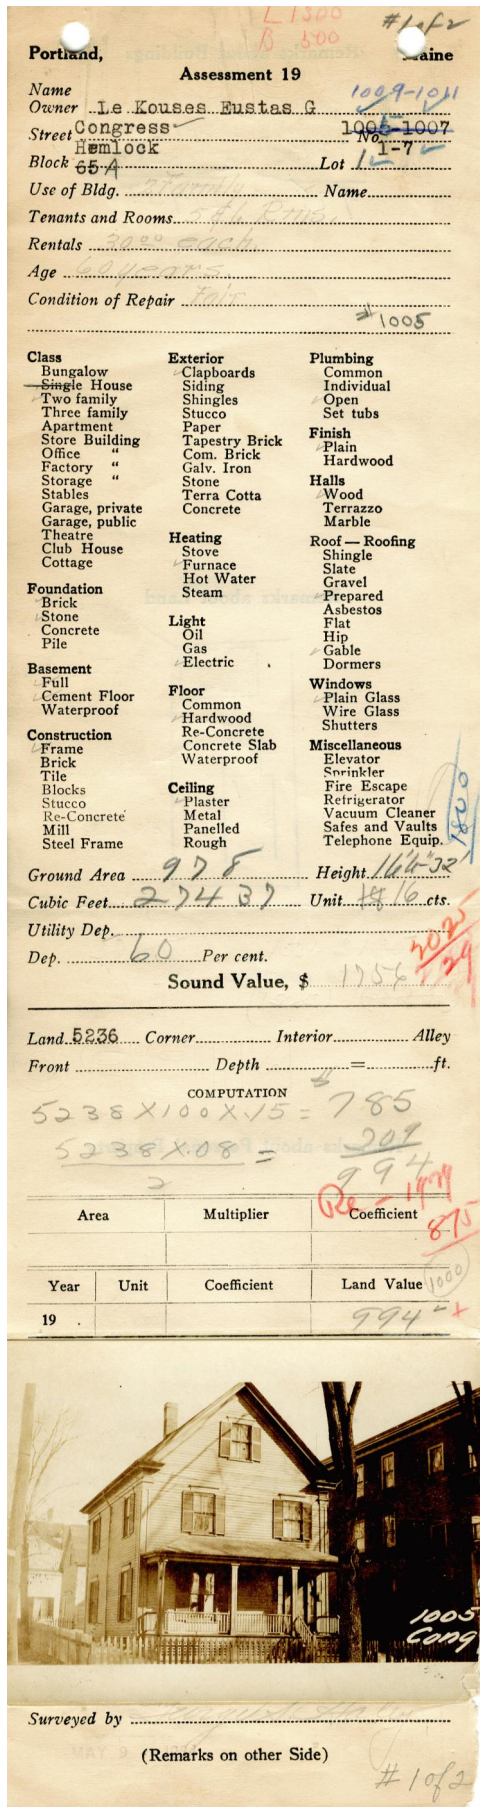 L 1500
B 500
# 1 of 2
Portland, Maine
Assessment 19
Name
Owner Le Kouses Eustas G 1009-1011
Street Congress No. 1005-1007
Hemlock 1-7
Block 65 A Lot 1
Use of Bldg. 2 Family Name
Tenants and Rooms 5 & 6 Rms.
Rentals 30 00 each.
Age 60 years.
Condition of Repair Fair
# 1005
Class
Bungalow
Single House
Two family
Three family
Apartment
Store Building
Office "
Factory "
Storage "
Stables
Garage, private
Garage, public
Theatre
Club House
Cottage
Foundation
Brick
Stone
Concrete
Pile
Basement
Full
Cement Floor
Waterproof
Construction
Frame
Brick
Tile
Blocks
Stucco
Re-Concrete
Mill
Steel Frame
Exterior
Clapboards
Siding
Shingles
Stucco
Paper
Tapestry Brick
Com. Brick
Galv. Iron
Stone
Terra Cotta
Concrete
Heating
Stove
Furnace
Hot Water
Steam
Light
Oil
Gas
Electric
Floor
Common
Hardwood
Re-Concrete
Concrete Slab
Waterproof
Ceiling
Plaster
Metal
Panelled
Rough
Plumbing
Common
Individual
Open
Set tubs
Finish
Plain
Hardwood
Halls
Wood
Terrazzo
Marble
Roof — Roofing
Shingle
Slate
Gravel
Prepared
Asbestos
Flat
Hip
Gable
Dormers
Windows
Plain Glass
Wire Glass
Shutters
Miscellaneous
Elevator
Sprinkler
Fire Escape
Refrigerator
Vacuum Cleaner
Safes and Vaults
Telephone Equip.
1800
Ground Area 978 Height 16'6"-32'
Cubic Feet 27437 Unit 18 16 cts.
Utility Dep.
2025
Dep. 60 Per cent.
29
Sound Value, $ 1756
Land 5236 Corner Interior Alley
Front Depth = ft.
COMPUTATION
5238 X 100 X .15 = $ 785
5238 X .08 = 209
2 994
Re - 1929
875
Area Multiplier Coefficient
1000
Year Unit Coefficient Land Value
19 994
1005
Cong
Surveyed by
(Remarks on other Side)
# 1 of 2